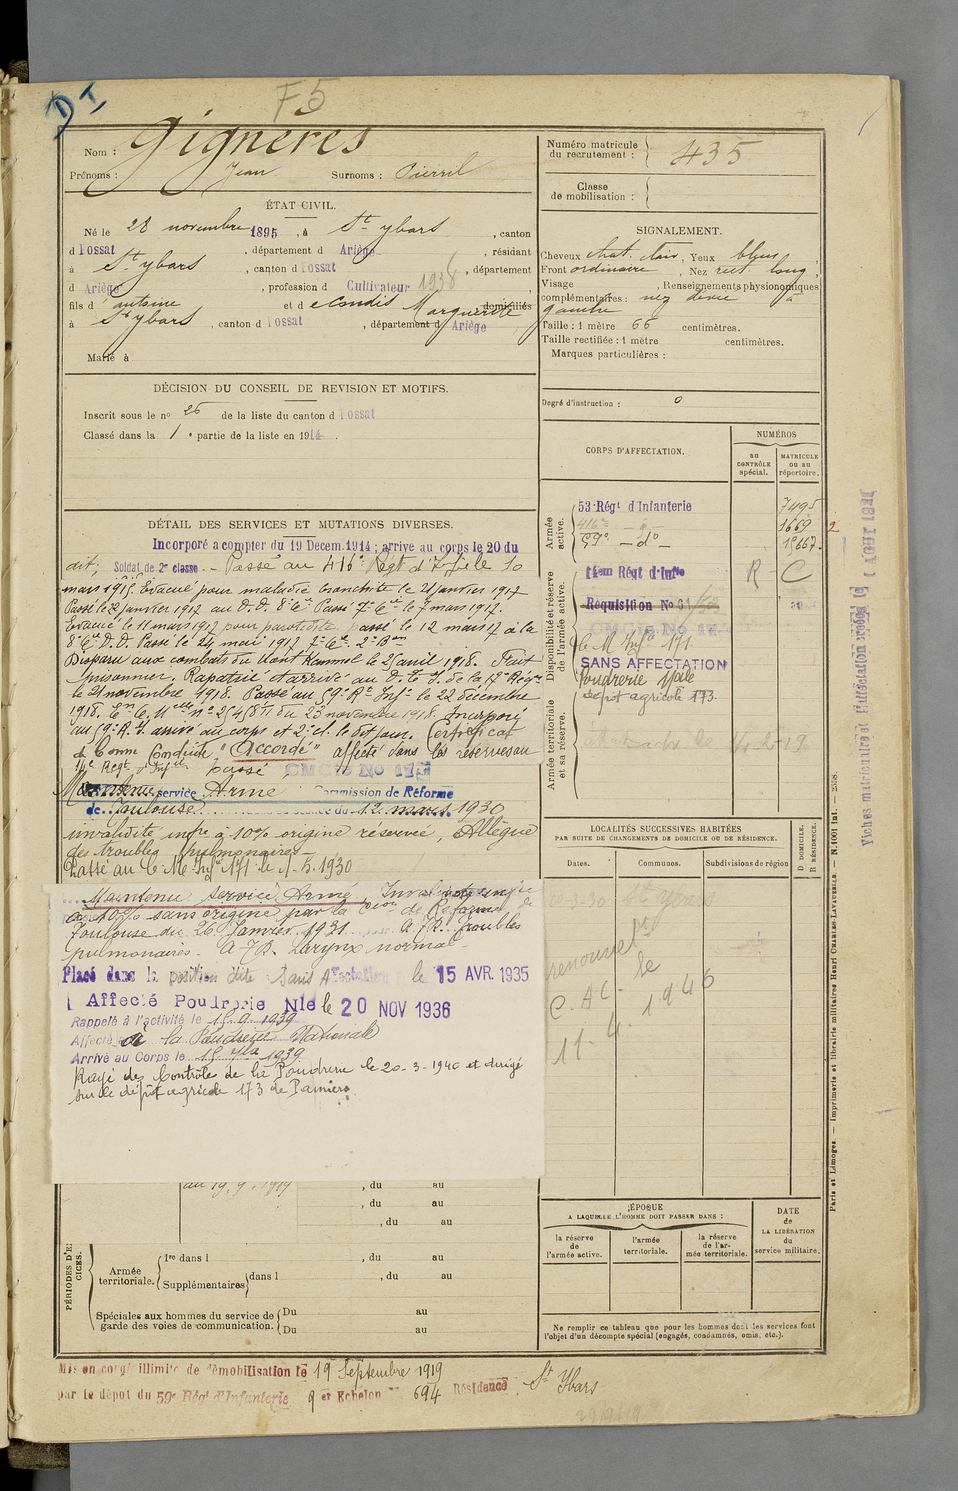 D I
F5
Nom : Gignères
Prénoms : Jean Surnoms : Pierril
Numéro matricule
du recrutement : 435
Classe
de mobilisation :
ÉTAT CIVIL.
Né le 28 novembre 1895, à St Ybars, canton
d Fossat, département d Ariège, résidant
à St Ybars, canton d Fossat, département
d Ariège, profession d Cultivateur 1938
fils d' antoine et d Marguerite, domiciliés
à St Ybars, canton d Fossat, département d Ariège
Marié à
SIGNALEMENT.
Cheveux chat. clair, Yeux bleus,
Front ordinaire, Nez rect long,
Visage , Renseignements physionomiques
complémentaires : nez dévié à
gauche
Taille : 1 mètre 66 centimètres.
Taille rectifiée : 1 mètre centimètres.
Marques particulières :
DÉCISION DU CONSEIL DE REVISION ET MOTIFS.
Inscrit sous le no 26 de la liste du canton d Fossat
Classé dans la 1e partie de la liste en 1914.
Degré d'instruction : 0
CORPS D'AFFECTATION.
NUMÉROS
au
CONTRÔLE
spécial.
MATRICULE
ou au
répertoire.
Armée
active.
53 Régt d'Infanterie 7495
416e — do — 1669 2
59e — do — 15667
Disponibilité et réserve
de l'armée active.
14em Régt d'Infie R C
Réquisition No
C M Infie 171
SANS AFFECTATION
Poudrerie Nale
depot agricole 173.
Armée territoriale
et sa réserve.
DÉTAIL DES SERVICES ET MUTATIONS DIVERSES.
Incorporé à compter du 19 Decem. 1914 ; arrivé au corps le 20 du
dit ; Soldat de 2e classe. - Passé au 416e Régt d'Infie le 10
mars 1915. Evacué pour maladie bronchite le 21 janvier 1917
Passé le janvier 1917 au D. D. 8e Cie Passé 7e Cie le 7 mars 1917.
Evacué le 11 mars 1917 pour parotidite passé le 12 mars 17 à la
8e Cie D. D. Passé le 24 mai 1917 7e Cie 2e Bon
Disparu aux combats du Mont Kemmel le 25 avril 1918. Fait
prisonnier. Rapatrié et arrivé au D. T. I. de la 17e Régn
le 21 novembre 1918. Passé au 59e Rt Infie le 22 décembre
1918. du 23 novembre 1918. Incorporé
au 59e R. I. arrivé au corps et 2e cl. le dt jour. Certificat
de bonne Conduite "Accordé" affecté dans les réserves au
14e Regt d'Infie passé CMC Is No 17
Maintenu service Armé Commission de Réforme
de Toulouse du 12 mars 1930
invalidité infre à 10% origine réservée, Allègue
des troubles pulmonaires -
Passé au C. M. Infie 171 le 1.5.1930
Maintenu service Armé Invalidité infre
à 10% sans origine par la Cion de Réforme de
Toulouse du 26 Janvier 1931. Troubles
pulmonaires. Larynx normal -
Placé dans la position dite Sans Affectation le 15 AVR. 1935
Affecté Poudrerie Nle le 20 NOV 1936
Rappelé à l'activité le 15.9.1939
Affecté à la Poudrerie Nationale
Arrivé au Corps le 15 7bre 1939
Rayé des Contrôle de la Poudrerie le 20-3-1940 et dirigé
sur le dépôt agricole 173 de Pamiers
LOCALITÉS SUCCESSIVES HABITÉES
PAR SUITE DE CHANGEMENTS DE DOMICILE OU DE RÉSIDENCE.
Dates. Communes. Subdivisions de région
D DOMICILE.
R RÉSIDENCE.
-3-30 St Ybars
renouvelé
C. A C. le
11. 4. 1946
au 19.9.1919 , du au
, du au
, du au
PÉRIODES D'E
CICES.
Armée
territoriale.
1re dans l , du au
Supplémentaires dans l , du au
Spéciales aux hommes du service de
garde des voies de communication.
Du au
Du au
ÉPOQUE
A LAQUELLE L'HOMME DOIT PASSER DANS :
la réserve
de
l'armée active.
l'armée
territoriale.
la réserve
de l'ar-
mée territoriale.
DATE
de
LA LIBÉRATION
du
service militaire.
Ne remplir ce tableau que pour les hommes dont les services font
l'objet d'un décompte spécial (engagés, condamnés, omis, etc.).
Mis en congé illimité de démobilisation le 19 Septembre 1919
par le dépot du 59e Régt d'Infanterie 9 er Echelon 694 Résidence St Ybars
Paris et Limoges. — Imprimerie et librairie militaires Henri CHARLES-LAVAUZELLE. — N. 1001 int. —